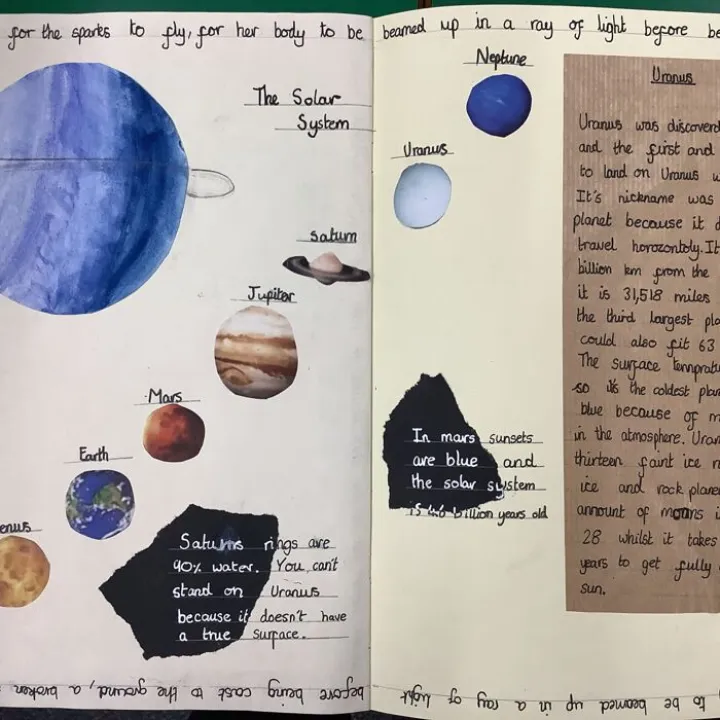 for the sparks to fly, for her body to be beamed up in a ray of light before be
The Solar
System
Saturn
Jupiter
Mars
Earth
enus
Saturns rings are
90% water. You can't
stand on Uranus
because it doesn't have
a true surface.
Neptune
Uranus
In mars sunsets
are blue and
the solar system
is 4.6 billion years old
Uranus
Uranus was discovered
and the first and
to land on Uranus w
It's nickname was
planet because it d
travel horozontoly. It
billion km from the
it is 31,518 miles
the third largest pla
could also fit 63
The surface tempratu
so it's the coldest plan
blue because of m
in the atmosphere. Uran
thirteen faint ice r
ice and rock planet
annount of moons i
28 whilst it takes
years to get fully
sun.
to be beamed up in a ray of light
before being cast to the ground, a broken